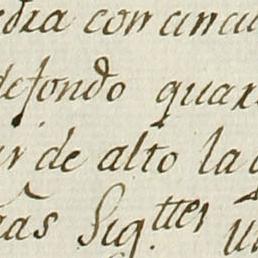 edra con cin
defondo quar
de alto la
as Sig.ttes